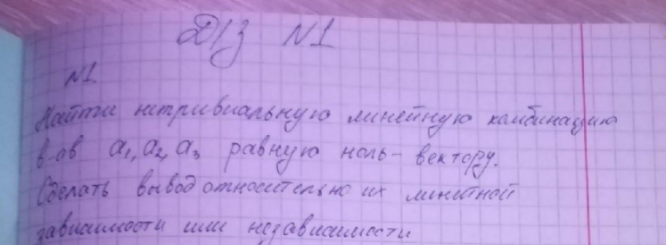 Д/з N1
N1.
Найти нетривиальную линейную комбинацию
в-ов a₁, a₂, a₃ равную ноль-вектору.
Сделать вывод относительно их линейной
зависимости или независимости